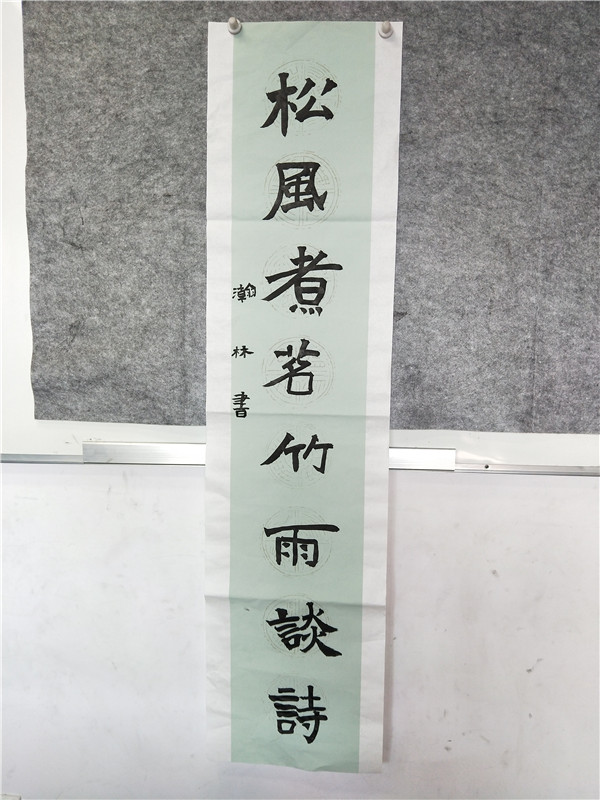 松風煮茗竹雨談詩
瀚林書